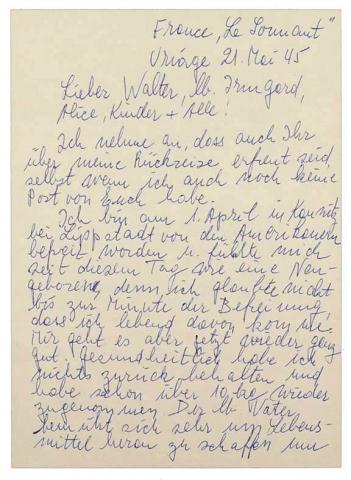 France, "La Sonnant"
Uriage 21. Mai 45
Lieber Walter, lb. Irmgard,
Alice, Kinder + Alle!
Ich nehme an, dass auch Ihr
über meine Rückreise erfreut seid,
selbst wenn ich auch noch keine
Post von Euch habe.
Ich bin am 1. April in Kaunitz
bei Lippstadt von den Amerikanern
befreit worden u. fühlte mich
seit diesem Tag wie eine Neu-
geborene, denn ich glaubte nicht
bis zur Minute der Befreiung,
dass ich lebend davon komme.
Mir geht es aber jetzt wieder ganz
gut, gesundheitlich habe ich
nichts zurück behalten und
habe schon über 10 kg wieder
zugenommen. Der lb. Vater
bemüht sich sehr um Lebens-
mittel heran zu schaffen um